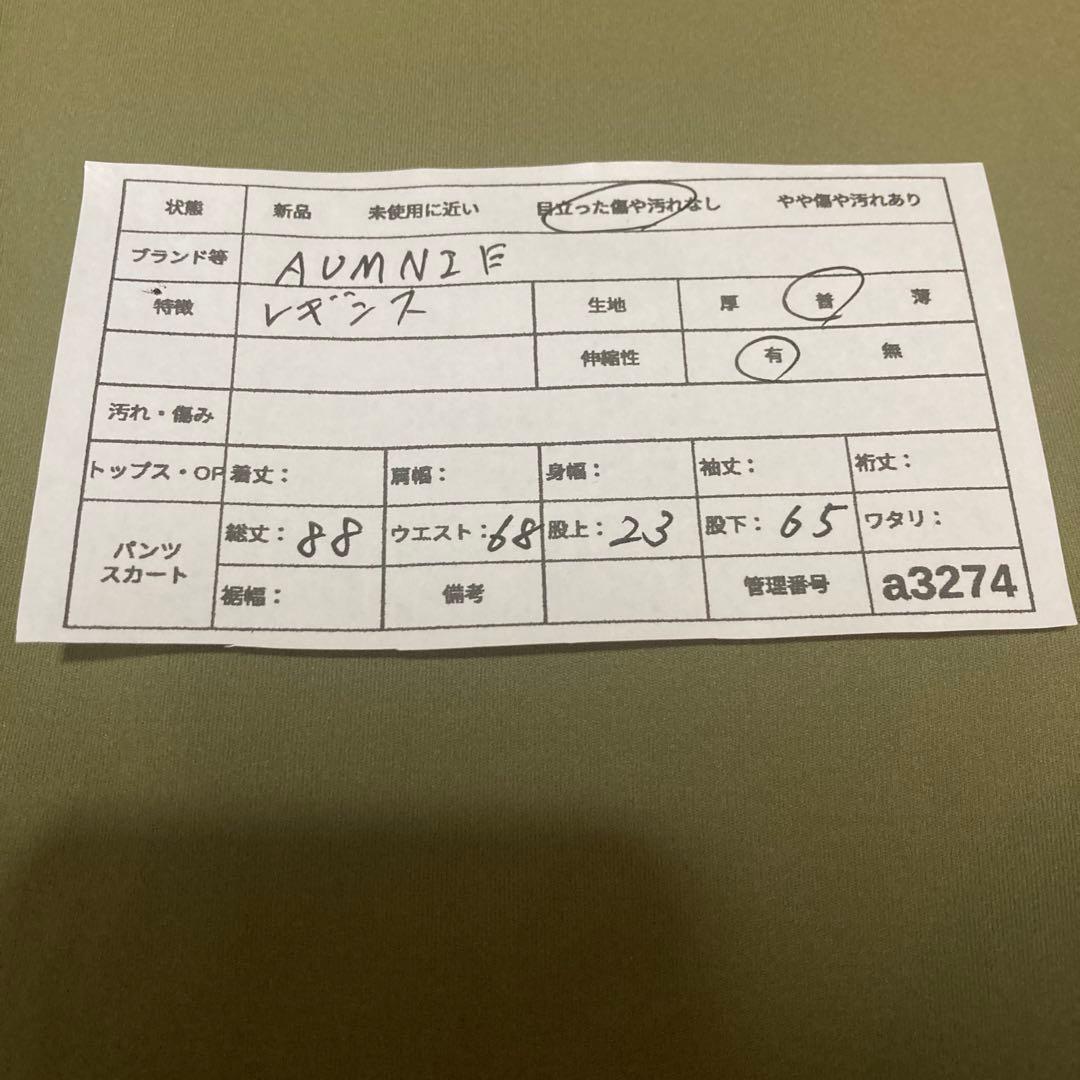 状態 新品 未使用に近い 目立った傷や汚れなし やや傷や汚れあり
ブランド等 AUMNIE
特徴 レギンス 生地 厚 普 薄
伸縮性 有 無
汚れ・傷み
トップス・OP 着丈： 肩幅： 身幅： 袖丈： 裄丈：
パンツ スカート 総丈：88 ウエスト：68 股上：23 股下：65 ワタリ：
裾幅： 備考 管理番号 a3274